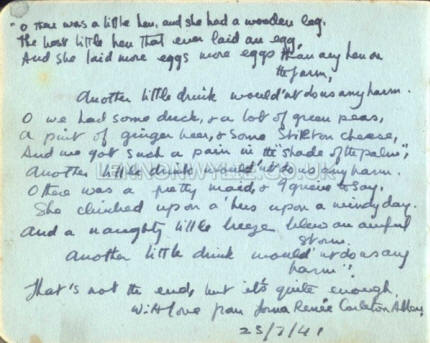 "O there was a little hen, and she had a wooden leg.
The best little hen that ever laid an egg,
And she laid more eggs more eggs than any hen on
the farm,
Another little drink would'nt do us any harm.
O we had some duck, & a lot of green peas,
A pint of ginger beer, & some Stilton cheese,
And we got such a pain in the "shade of the palm",
Another little drink would'nt do us any harm.
O there was a pretty maid, & I grieve to say,
She climbed upon a 'bus upon a windy day.
And a naughty little breeze blew an awful
storm.
Another little drink would'nt do us any
harm".
That's not the end, but it's quite enough.
With love from Renée Carleton
23/7/41